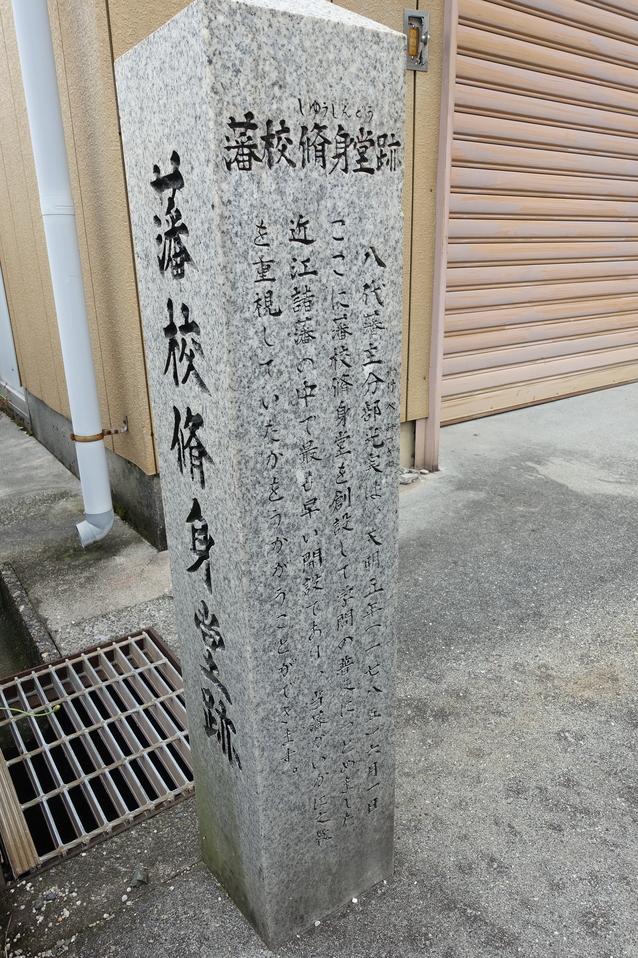 藩校脩身堂跡
しゆうしんどう
藩校脩身堂跡
八代藩主分部光実は 天明五年(一七八五)六月一日
ここに藩校脩身堂を創設して学問の普及につとめました
近江諸藩の中で最も早い開設であり、当藩がいかに文教
を重視していたかをうかがうことができます。